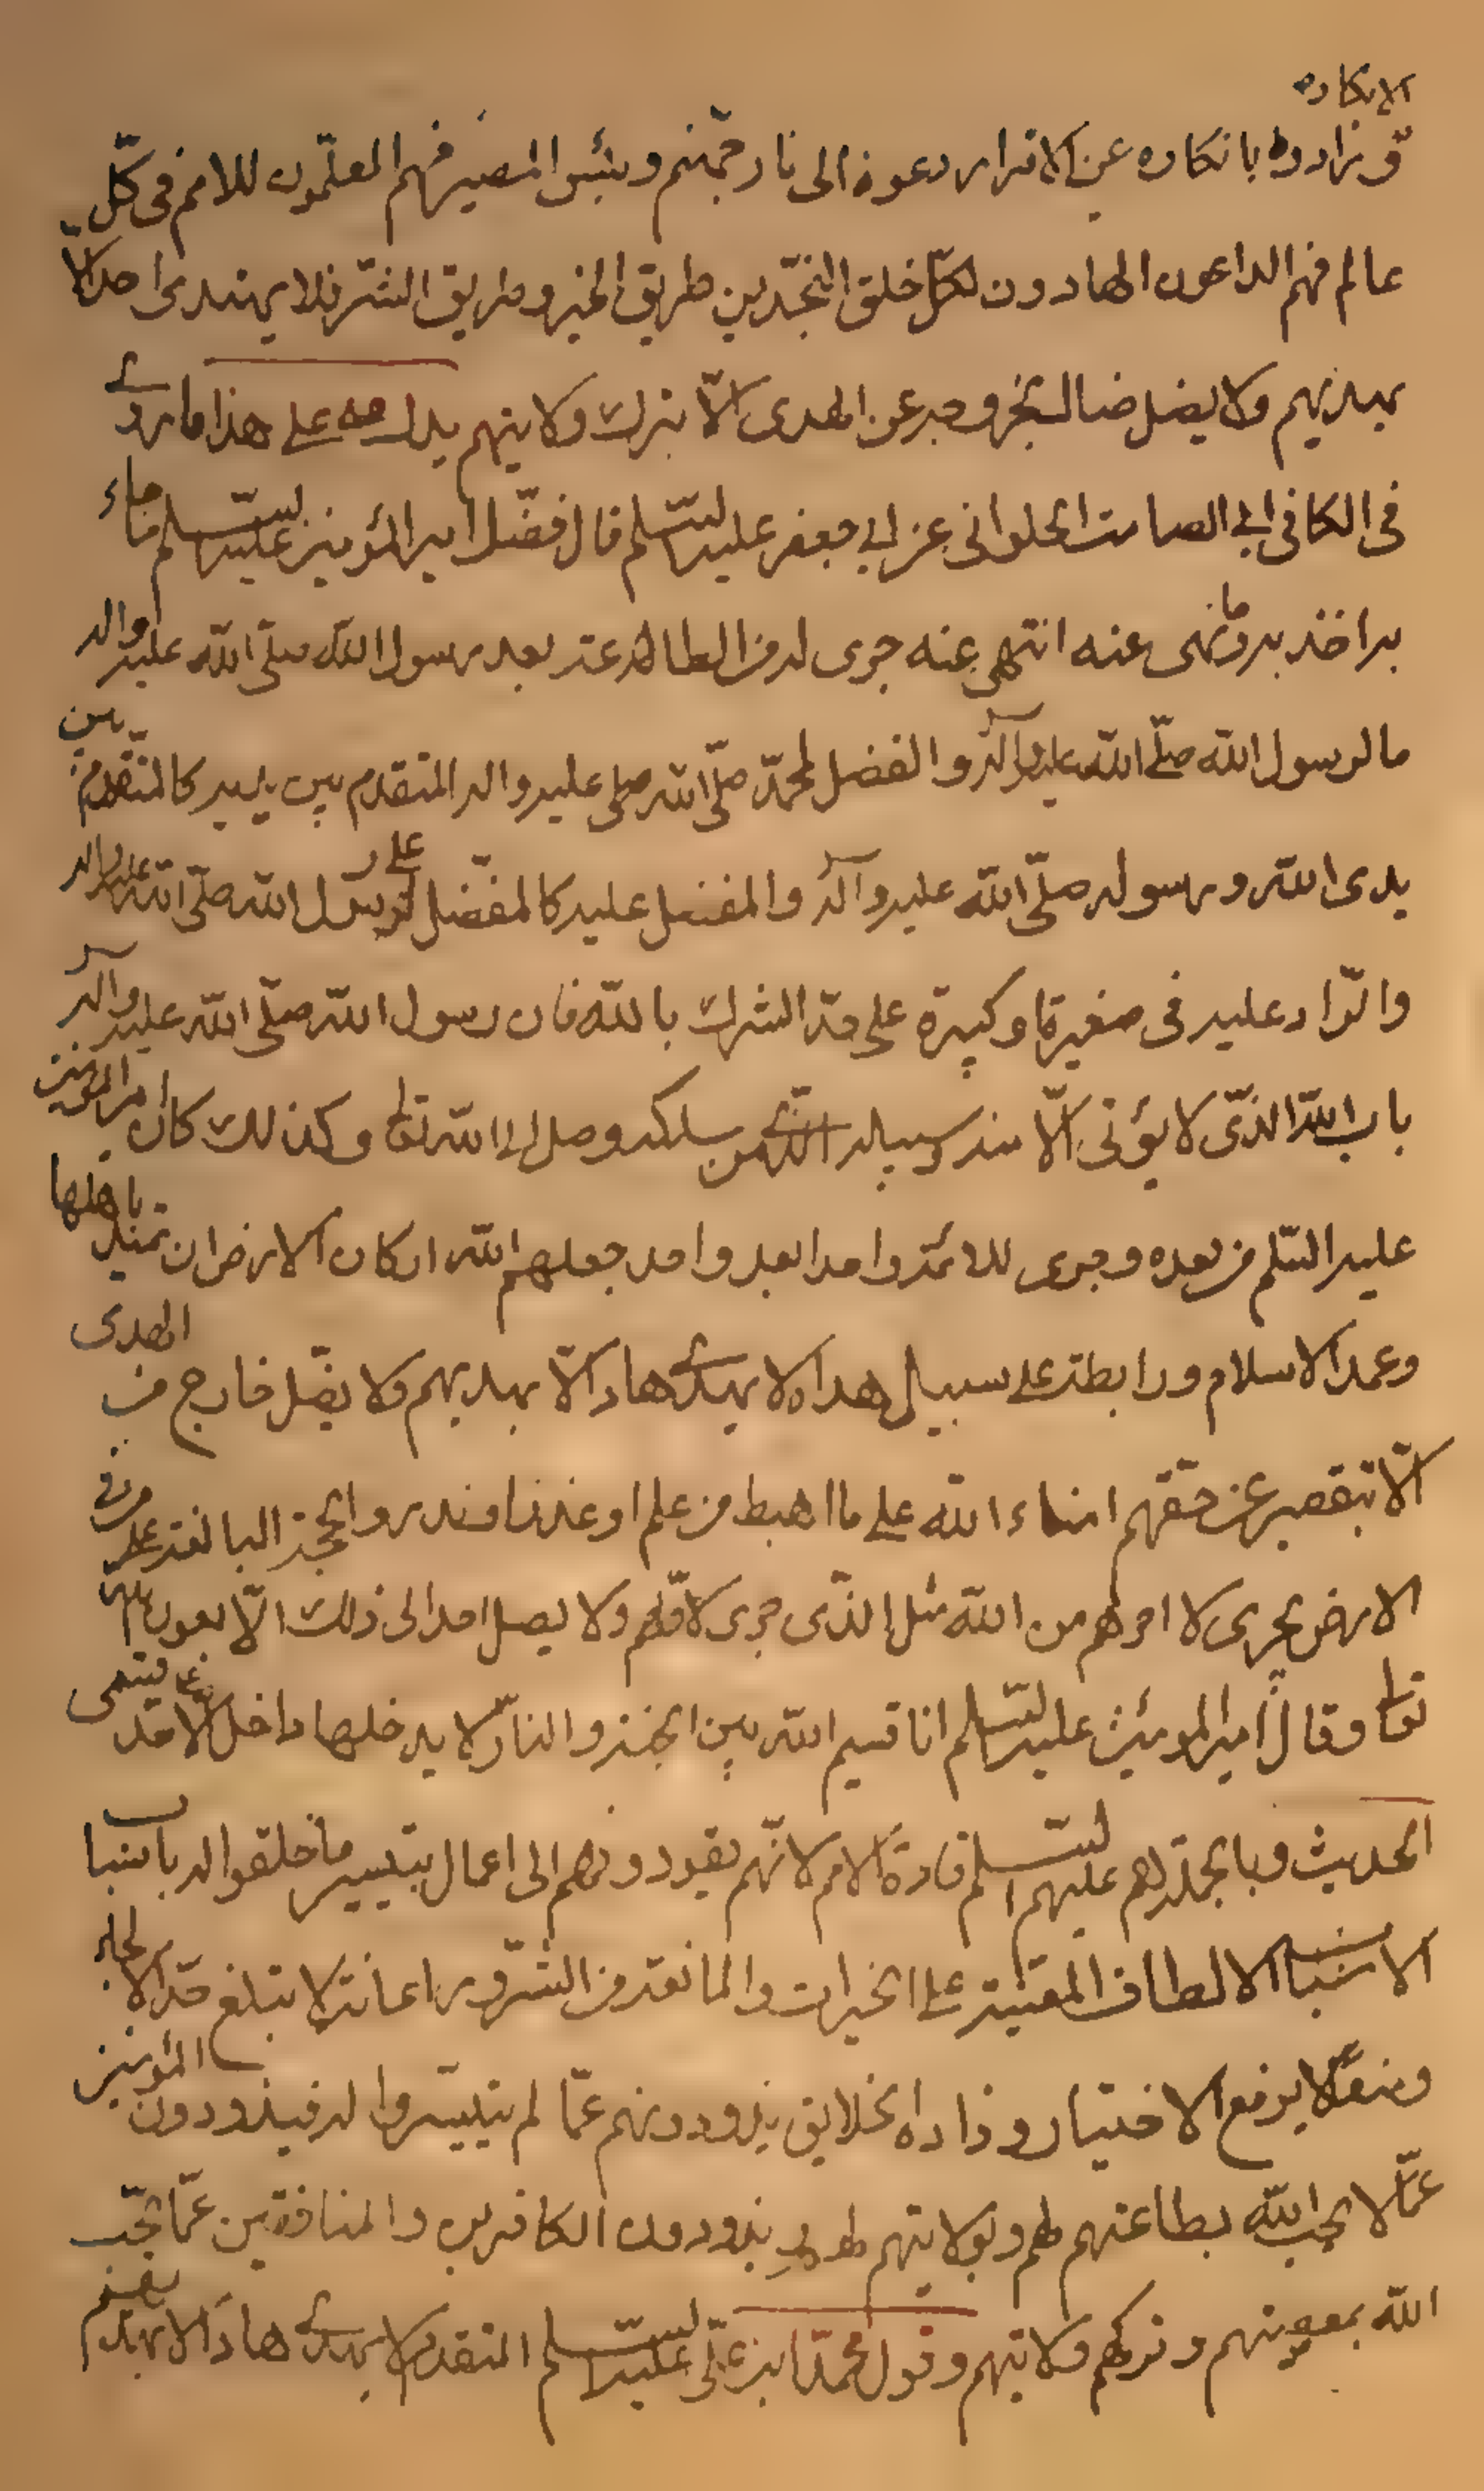 الانكاره
قزادوه بانكاره عن الاقرار دعوة الى نار جهنم وبئس المصير فهم المعلّمون للامم فى كلّ
عالم فهم الداعون الهادون لكلّ خلق النجدين طريق الخير وطريق الشرّ فلا يهتدى احد الّا
بهديهم ولا يضل ضال بخروجه عن الهدى الّا بترك ولايتهم يدل على هذا ما روى
فى الكافى ابى الصامت الحلوانى عن ابى جعفر عليه السّلم قال فضّل امير المؤمنين عليه السّلم ما جاء
به اخذ به وما نهى عنه انتهى عنه جرى له من الطاعة بعد رسول الله صلّى الله عليه واله
ما لرسول الله صلّى الله عليه وآله والفضل لمحمّد صلّى الله صلى عليه واله المتقدم بين يديه كالمتقدّم بين
يدى الله ورسوله صلّى الله عليه وآله والمفضل عليه كالمفضّل على رسول الله صلّى الله عليه واله
والرّاد عليه فى صغيرة او كبيرة على حدّ الشرك بالله فان رسول الله صلّى الله عليه وآله
باب الله الذّى لا يؤتى الّا منه وسبيله الذى من سلكه وصل الى الله تعا وكذلك كان امير المؤمنين
عليه السّلم من بعده وجرى للائمّة واحدا بعد واحد جعلهم الله اركان الارض ان تميد باهلها
وعمد الاسلام ورابطة على سبيل هداه لا يهتدى هاد الّا بهديهم ولا يضّل خارج من الهدى
الّا بتقصير عن حقّهم امناء الله على ما اهبط من علم او عذر او نذر والحجّة البالغة على من فى
الارض يجرى لاخرهم من الله مثل الذّى جرى لاوّلهم ولا يصل احد الى ذلك الّا بعون الله
تعا وقال امير المؤمنين عليه السّلم انا قسيم الله بين الجنة والنار لا يدخلها داخل الّا على حدّ قسمى
الحديث وبالجملة هم عليهم السّلم قادة الامم لانّهم يقودونهم الى اعمال بتيسير ما خلقوا له باسباب
الاسباب الالطاف المعينة على الخيرات والمانعة من الشرور اعانة لا تبلغ حدّ الالجاء
ومنعًا لا يرفع الاختيار وذادة الخلايق يذودونهم عمّا لم يتيسّروا له فيذودون المؤمنين
عمّا لا يحب الله بطاعتهم لهم وبولايتهم لهم ويذودون الكافرين والمنافقين عمّا يحّب
الله بمعصيتهم وتركهم ولايتهم وقول محمّد ابن علّى عليه السّلم المتقدم لا يهتدى هاد الا بهديهم